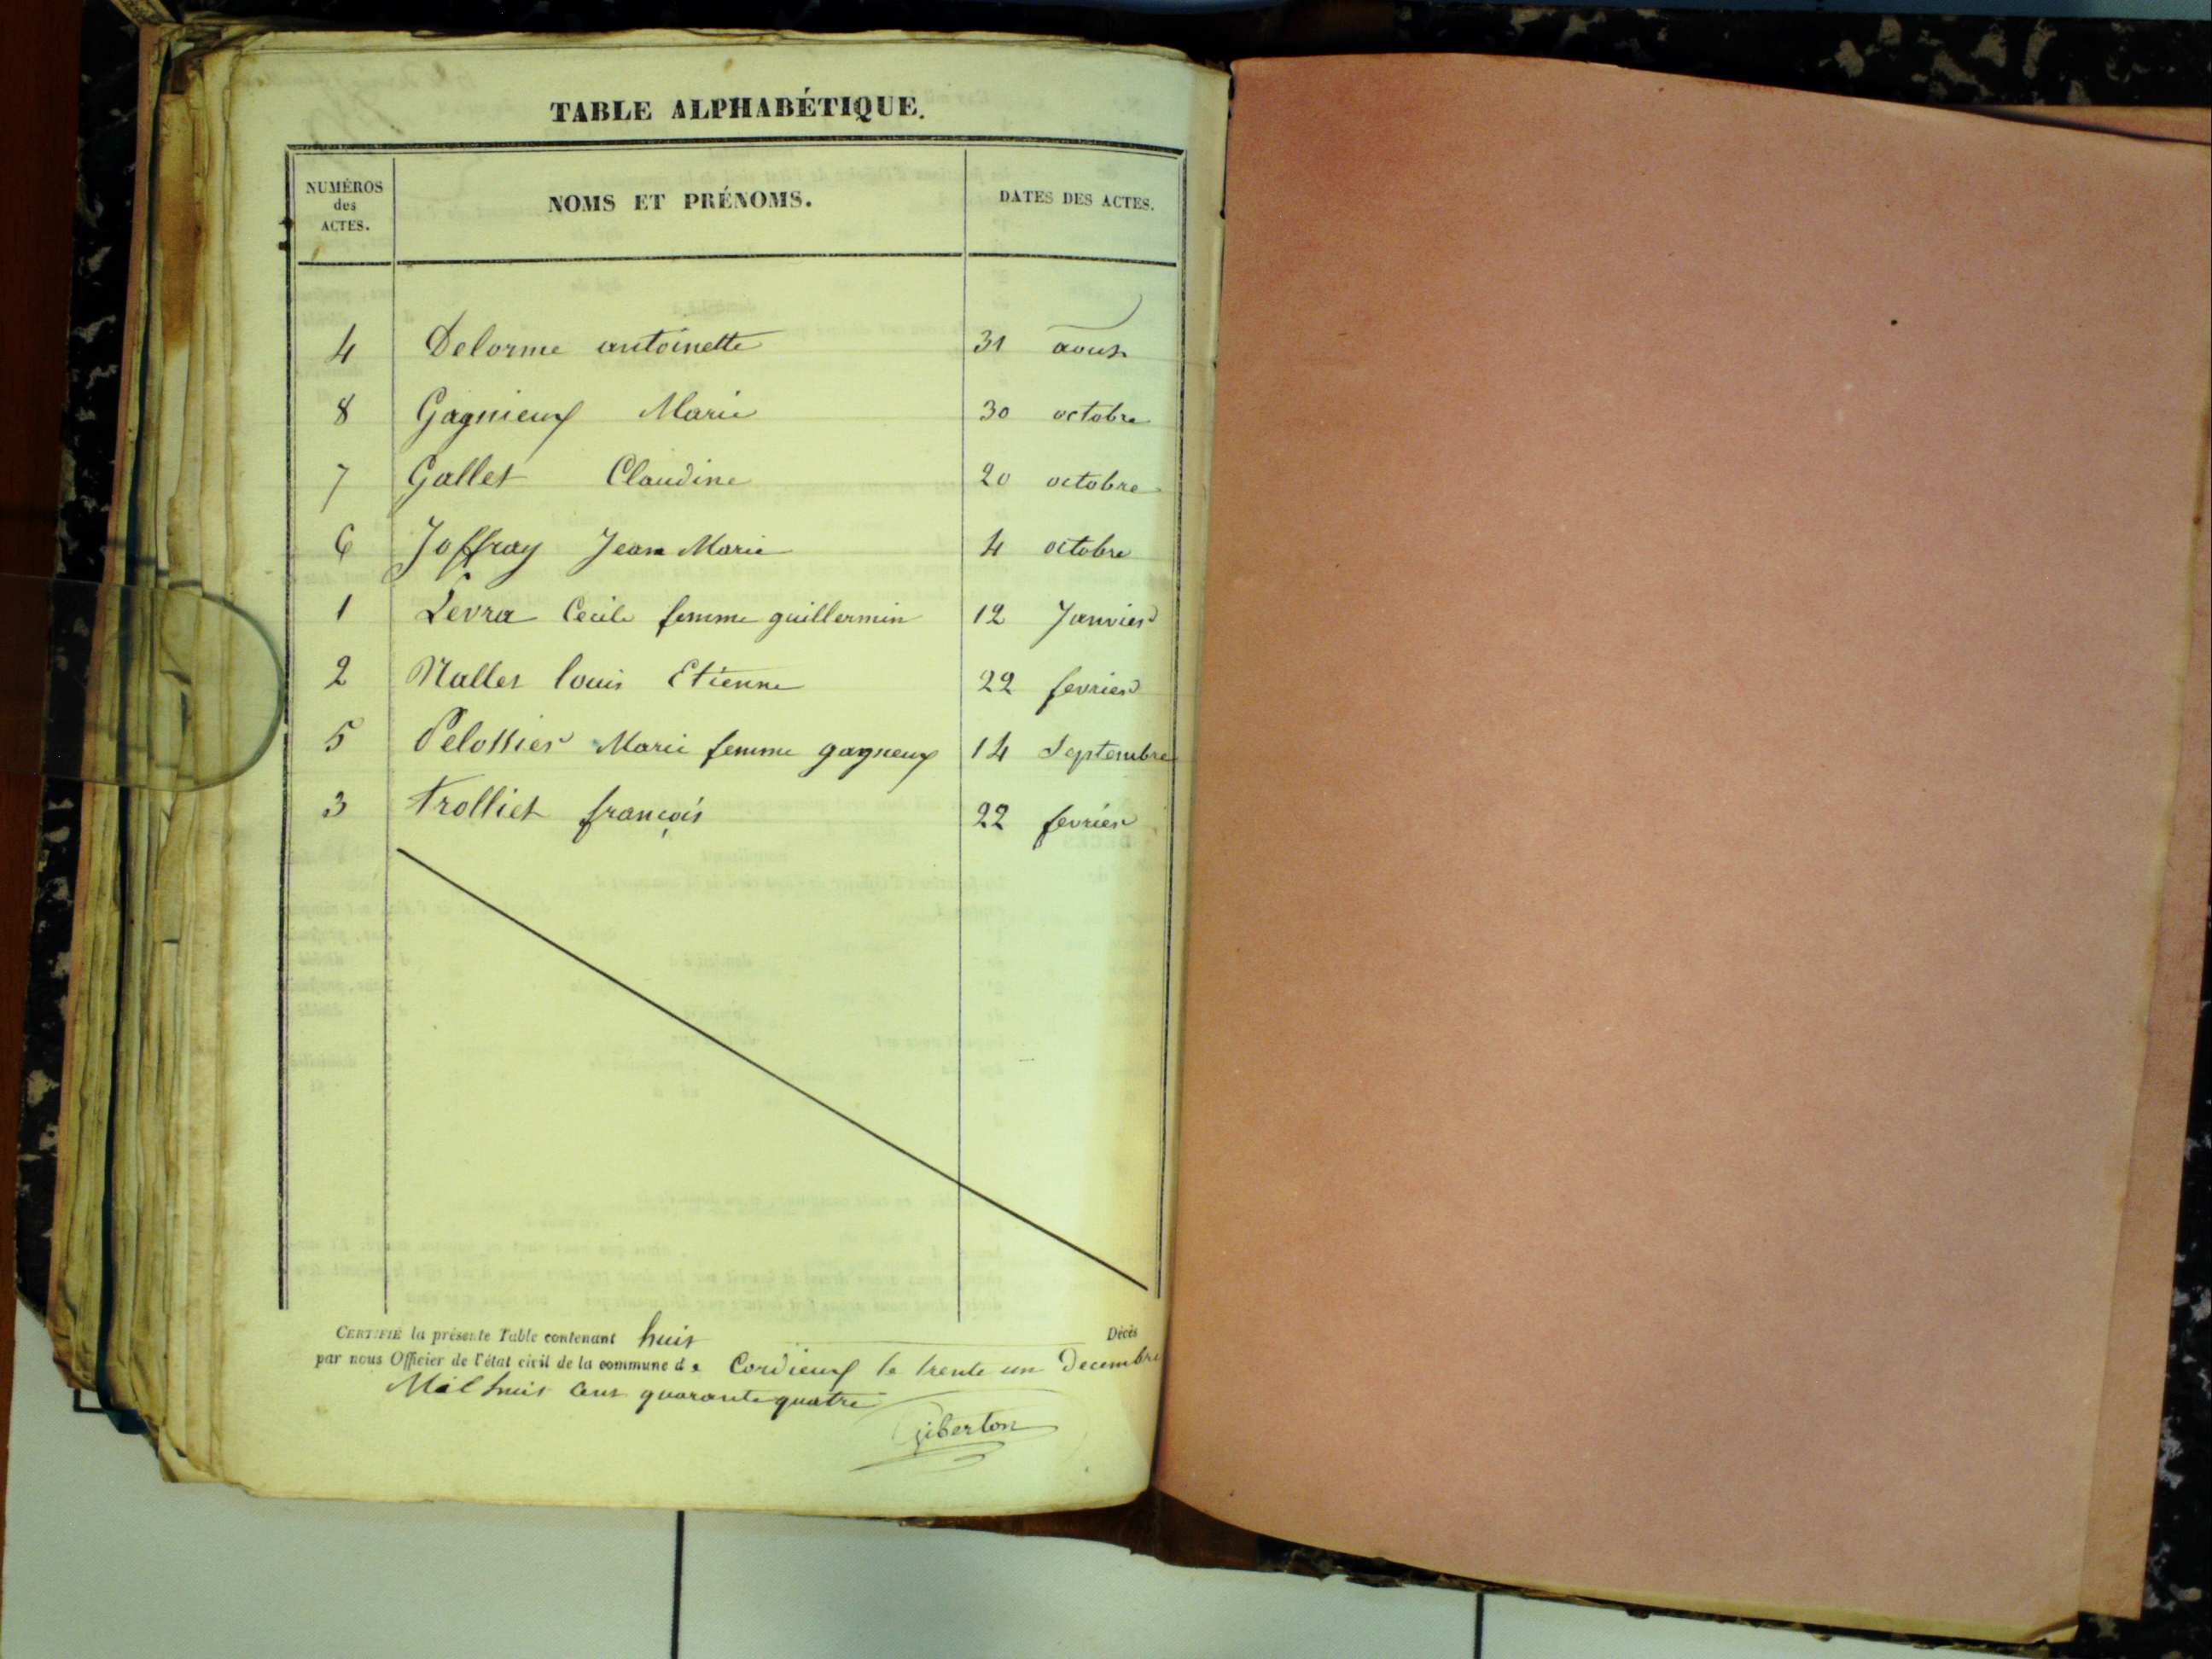 TABLE ALPHABÉTIQUE.
NUMÉROS
des
ACTES.
NOMS ET PRÉNOMS.
DATES DES ACTES.
4 Delorme antoinette 31 aout
8 Gagnieux Marie 30 octobre
7 Gallet Claudine 20 octobre
6 Joffray Jean Marie 4 octobre
1 Levra Cecile femme guillermin 12 Janvier
2 Mallet louis Etienne 22 fevrier
5 Pelossier Marie femme gagneux 14 Septembre
3 trolliet françois 22 fevrier
CERTIFIÉ la présente Table contenant huit Décès
par nous Officier de l'état civil de la commune de Cordieux le trente un Decembre
Mil huit Cent quarante quatre
Giberton